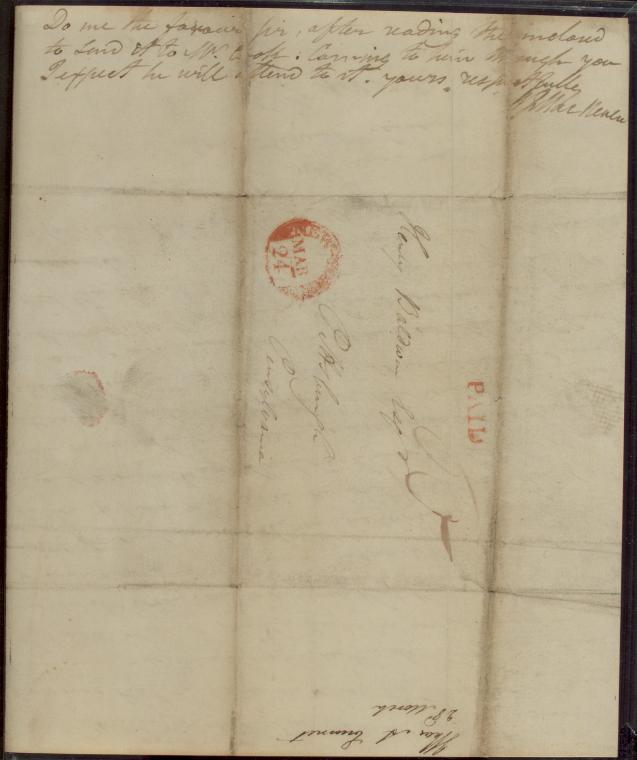 Do me the favour sir, after reading the inclosed
to send it to Mr. : Coming to him through you
I expect he will attend to it. yours respectfully
MacNeven
NEW
MAR
24
PAID
Henry Baldwin Esqr
Pittsburgh
Pensylvania
Emmet
28 March